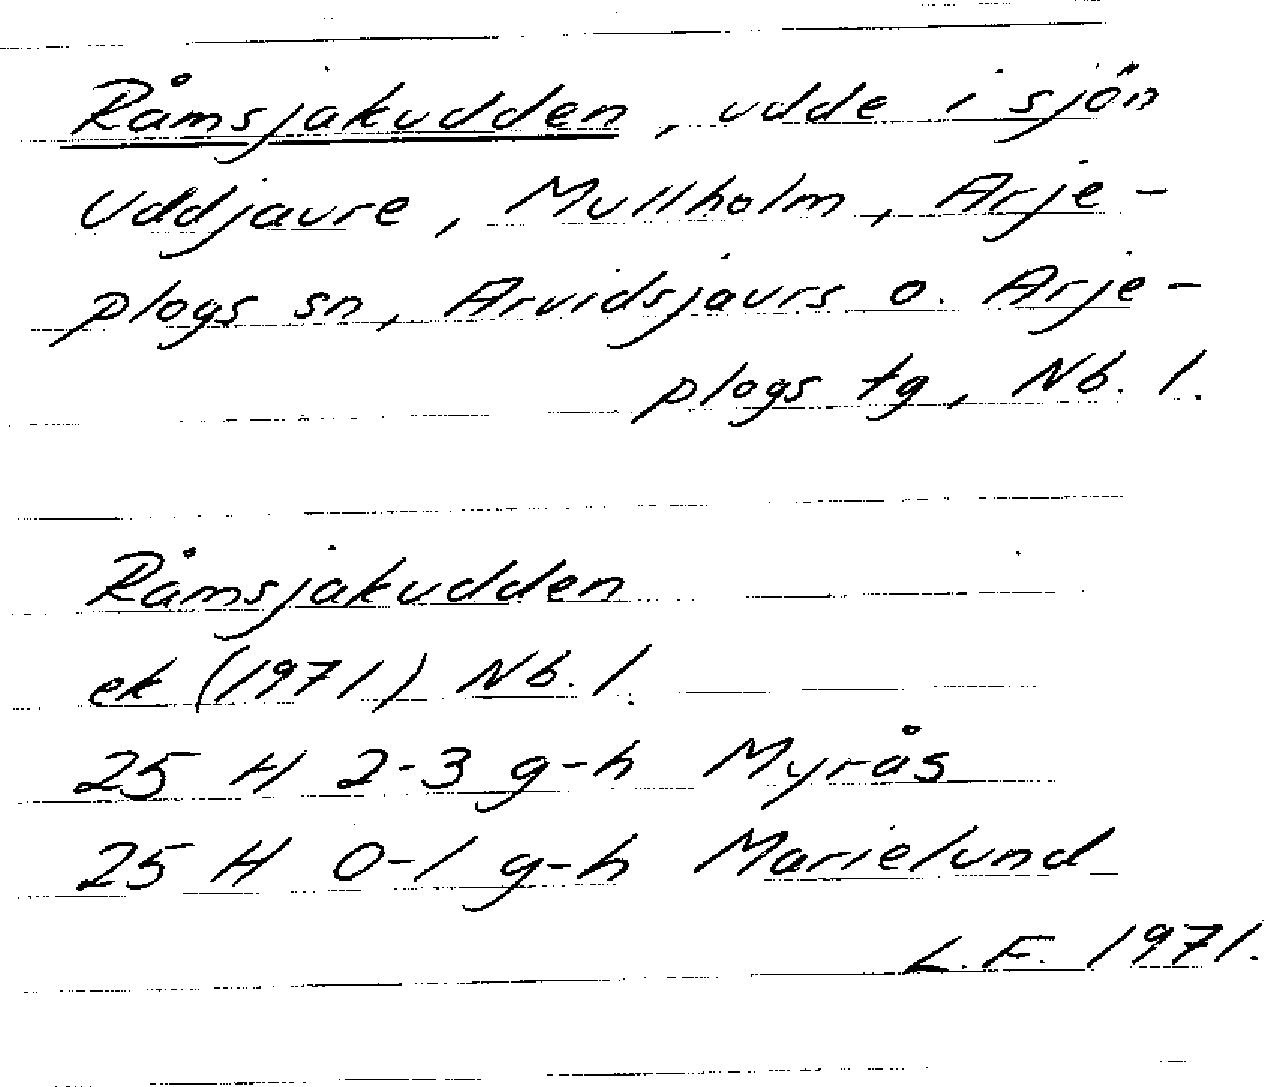 Råmsjakudden, udde i sjön
Uddjaure, Mullholm, Arje-
plogs sn, Arvidsjaurs o. Arje-
plogs tg, Nb. l.
Råmsjakudden
ek (1971) Nb. l.
25 H 2-3 g-h Myrås
25 H 0-1 g-h Marielund
L.F. 1971.